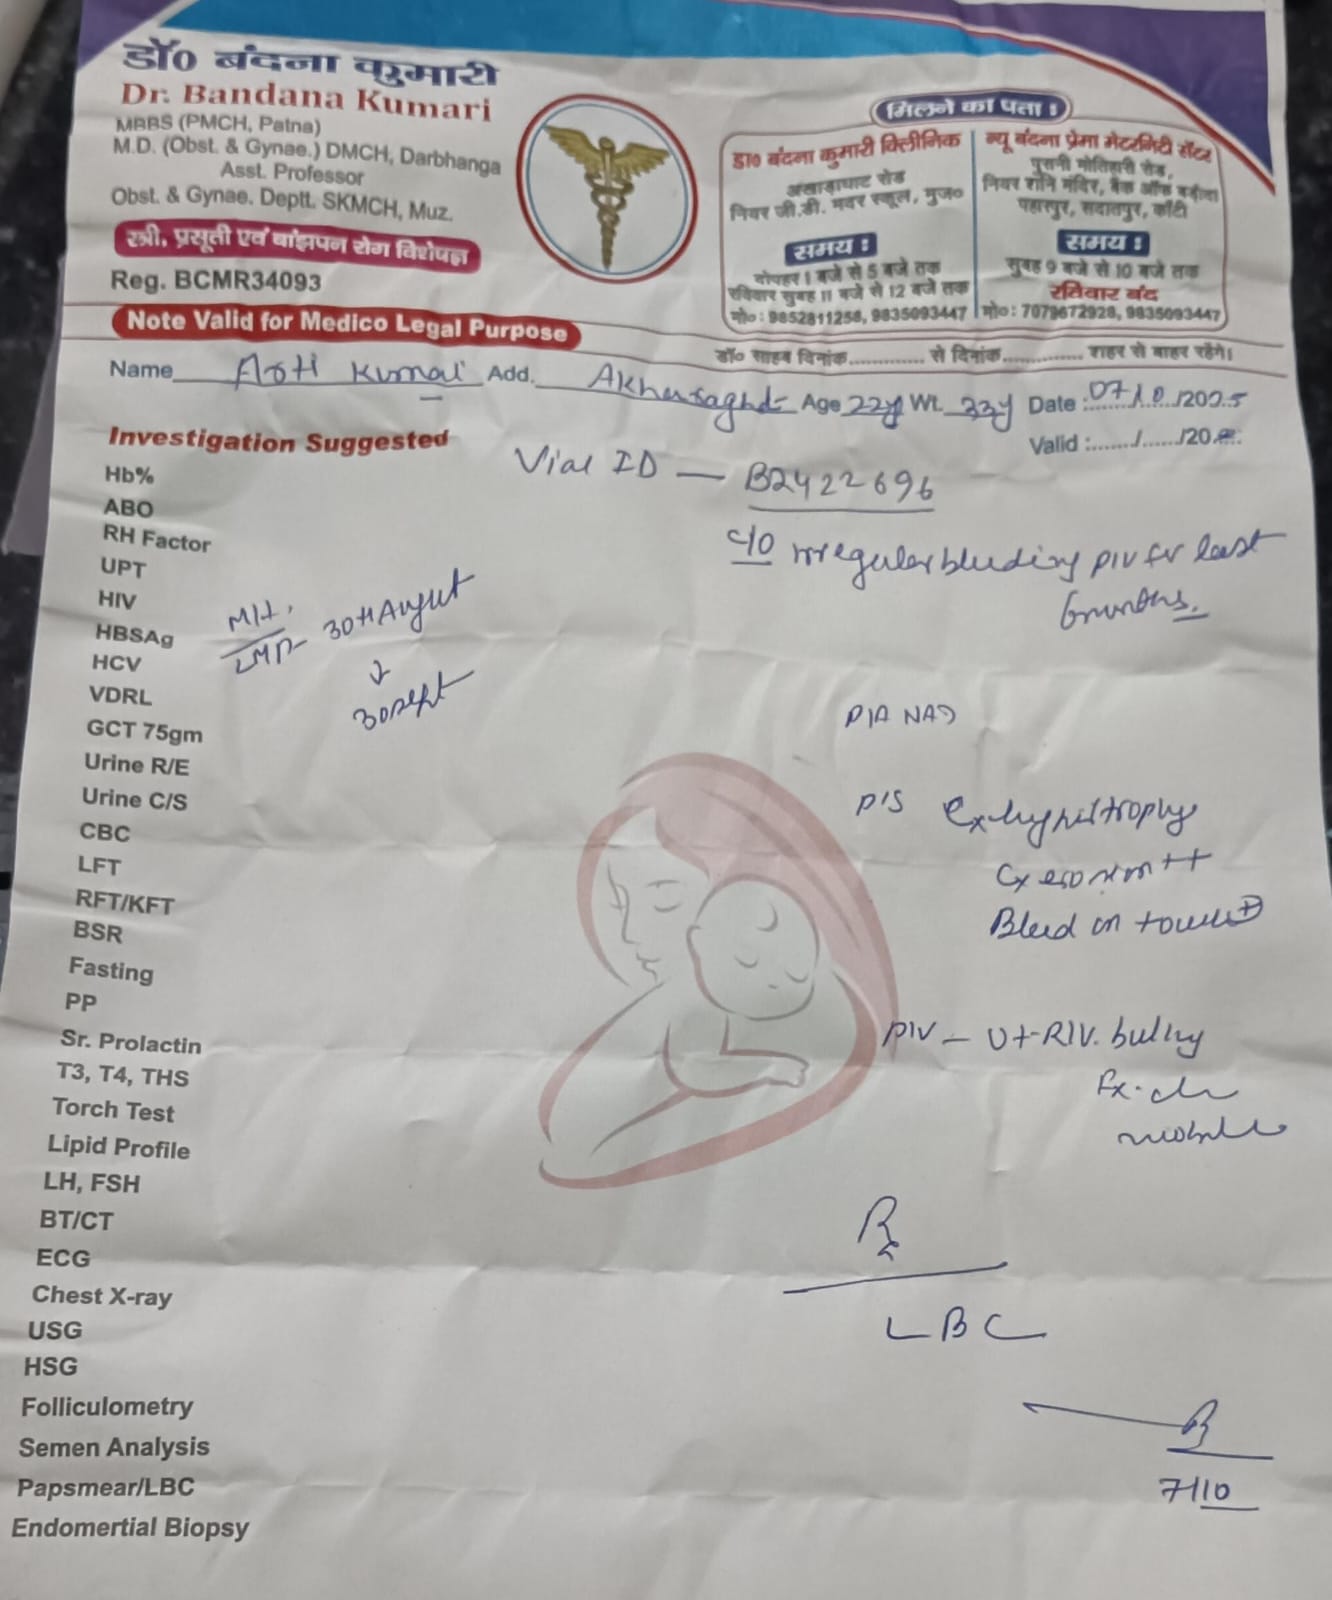 डॉ० बंदना कुमारी
Dr. Bandana Kumari
MBBS (PMCH, Patna)
M.D. (Obst. & Gynae.) DMCH, Darbhanga
Asst. Professor
Obst. & Gynae. Deptt. SKMCH, Muz.
स्त्री, प्रसूती एवं बांझपन रोग विशेषज्ञ
Reg. BCMR34093
Note Valid for Medico Legal Purpose
मिलने का पता :
डा० बंदना कुमारी क्लीनिक
अखाड़ाघाट रोड
नियर जी.डी. मदर स्कूल, मुज०
समय :
दोपहर 1 बजे से 5 बजे तक
रविवार सुबह 11 बजे से 12 बजे तक
मो० : 9852811258, 9835093447
न्यू बंदना प्रेमा मेटरनिटी सेंटर
पुरानी मोतिहारी रोड,
नियर शनि मंदिर, बैंक ऑफ बड़ौदा
पहाड़पुर, सदातपुर, काँटी
समय :
सुबह 9 बजे से 10 बजे तक
रविवार बंद
मो० : 7079672928, 9835093447
डॉ० साहब दिनांक............. से दिनांक............. शहर से बाहर रहेंगे।
Name Add. Age 22y Wt. 33y Date : 07/10/2025
Valid :......./....../20
Vial ID — B2422696
Investigation Suggested
c/o irregular bleeding P/V for last
6 months.
Hb%
ABO
RH Factor
UPT
HIV
HBSAg
HCV
VDRL
GCT 75gm
Urine R/E
Urine C/S
CBC
LFT
RFT/KFT
BSR
Fasting
PP
Sr. Prolactin
T3, T4, THS
Torch Test
Lipid Profile
LH, FSH
BT/CT
ECG
Chest X-ray
USG
HSG
Folliculometry
Semen Analysis
Papsmear/LBC
Endomertial Biopsy
M/H.
LMP- 30th August
↓
30 sept
P/A NAD
P/S Cx-hypertrophy
Cx erosion ++
Bleed on touch +
P/V — Ut-R/V. bulky
Fx. clr
mobile
Rx
LBC
7/10